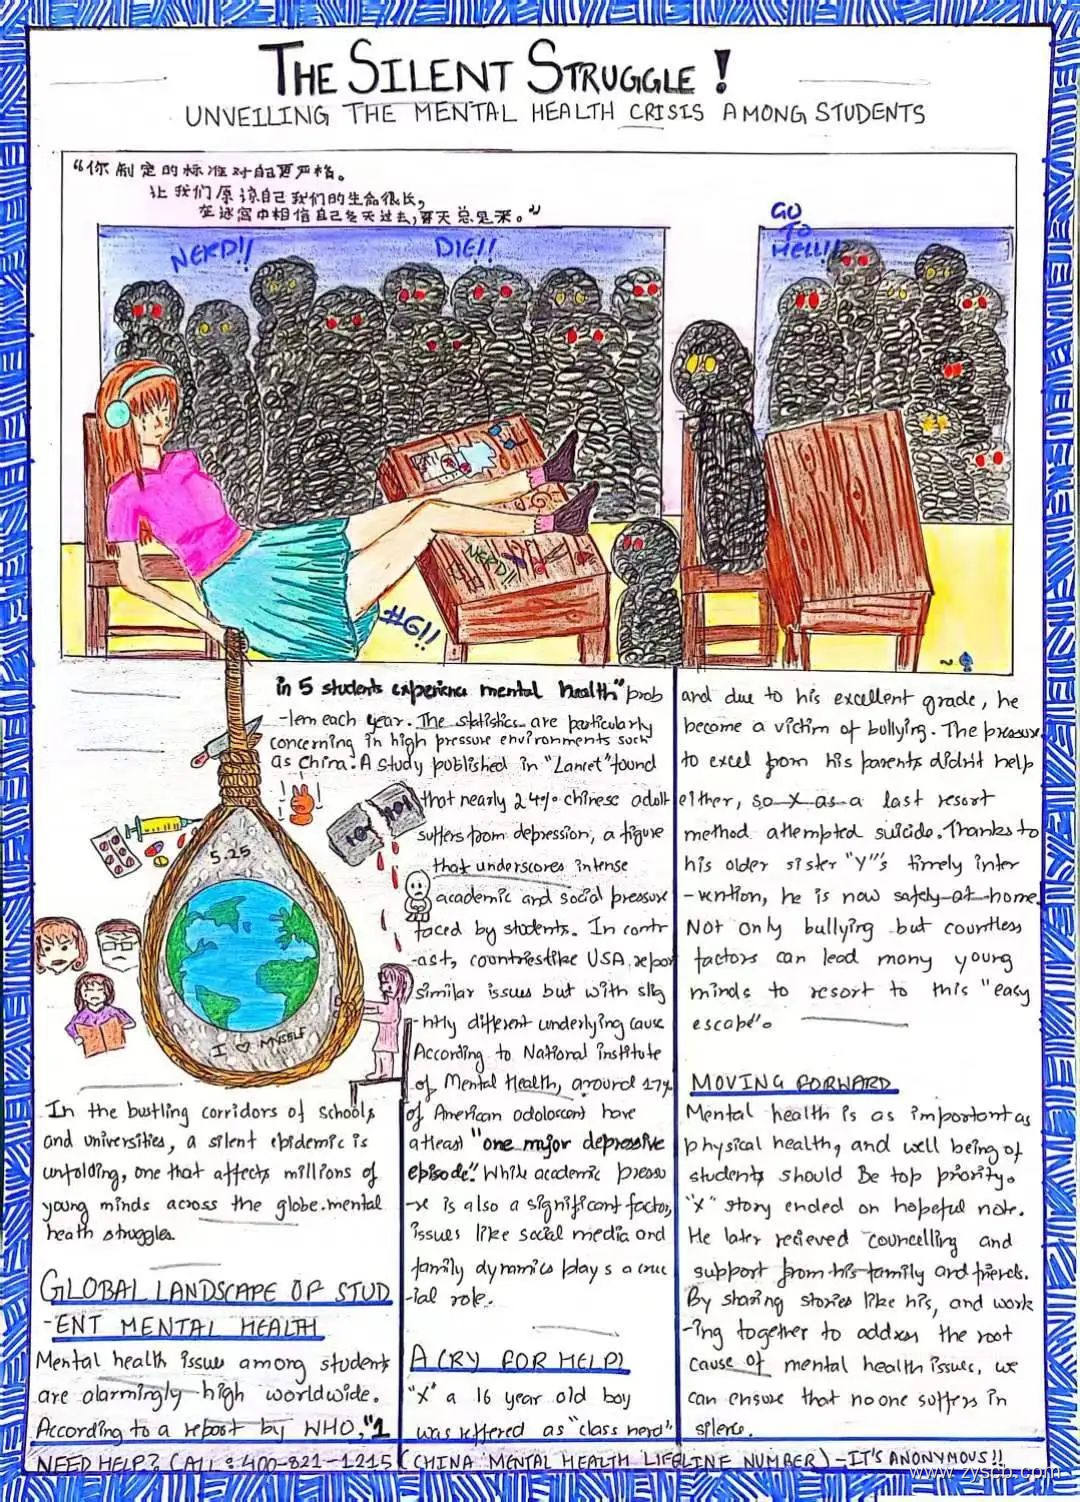 THE SILENT STRUGGLE!
UNVEILING THE MENTAL HEALTH CRISIS AMONG STUDENTS
"你制定的标准对自己更严格。
让我们原谅自己我们的生命很长,
相信自己冬天过去,春天总见来。"
NERD!!
DIE!!
GO
TO
HELL!!
NERD!!
#G!!
5.25
I ♡ MYSELF
In the bustling corridors of schools
and universities, a silent epidemic is
unfolding, one that affects millions of
young minds across the globe.mental
heath struggles.
GLOBAL LANDSCAPE OF STUD
-ENT MENTAL HEALTH
Mental health issue among students
are alarmingly high worldwide.
According to a report by WHO,"1
in 5 students experience mental health" prob
-lem each year. The statistics are particularly
concerning in high pressure environments such
as China. A study published in "Lancet" found
that nearly 24% chinese adolt
suffers from depression, a figure
that underscores intense
academic and social pressure
faced by students. In contr
-ast, countries like USA, repor
similar issues but with slig
-htly different underlying cause
According to National institute
of Mental Health, around 17%
of American adoloscent have
atleast "one major depressive
episode". While academic pressu
-re is also a significant factor,
issues like social media and
family dynamics plays a cruc
-ial role.
A CRY FOR HELP!
"X" a 16 year old boy
was reffered as "class nerd"
and due to his excellent grade, he
become a victim of bullying. The pressure
to excel from his parents didn't help
either, so X as a last resort
method attempted suicide. Thanks to
his older sister "Y"'s timely inter
-vention, he is now safely at home.
Not only bullying but countless
factors can lead many young
minds to resort to this "easy
escape".
MOVING FORWARD
Mental health is as important as
physical health, and well being of
students should Be top priority.
"X" story ended on hopeful note.
He later recieved councelling and
support from his family and friends.
By sharing stories like his, and work
-ing together to address the root
cause of mental health issues, we
can ensure that no one suffers in
silence.
NEED HELP? CALL : 400-821-1215 (CHINA MENTAL HEALTH LIFELINE NUMBER) - IT'S ANONYMOUS!!
www.zyscb.com